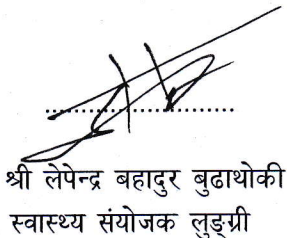 श्री लेपेन्द्र बहादुर बुढाथोकी
स्वास्थ्य संयोजक लुङग्री